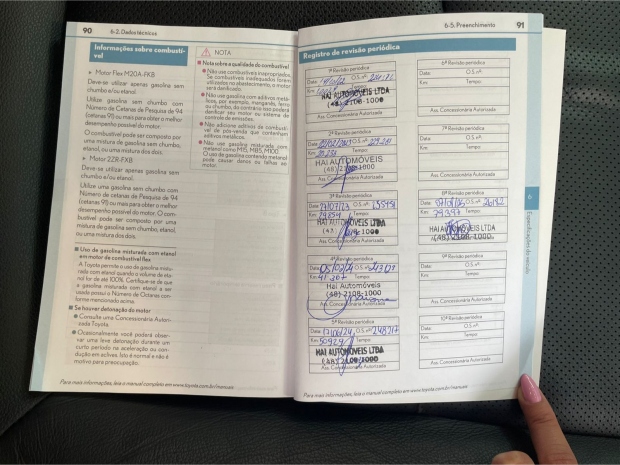 90
6-2. Dados técnicos
Informações sobre combustí-
vel
Motor Flex M20A-FKB
Deve-se utilizar apenas gasolina sem
chumbo e/ou etanol.
Utilize gasolina sem chumbo com
Número de Cetanas de Pesquisa de 94
(cetanas 91) ou mais para obter o melhor
desempenho possível do motor.
O combustível pode ser composto por
uma mistura de gasolina sem chumbo,
etanol, ou uma mistura dos dois.
Motor 2ZR-FXB
Deve-se utilizar apenas gasolina sem
chumbo e/ou etanol.
Utilize uma gasolina sem chumbo com
Número de cetanas de Pesquisa de 94
(cetanas 91) ou mais para obter o melhor
desempenho possível do motor. O com-
bustível pode ser composto por uma
mistura de gasolina sem chumbo, etanol,
ou uma mistura dos dois.
■ Uso de gasolina misturada com etanol
em motor de combustível flex
A Toyota permite o uso de gasolina mistu-
rada com etanol quando o volume de eta-
nol for de até 100%. Certifique-se de que
a gasolina misturada com etanol a ser
usada possui o Número de Octanas con-
forme mencionado acima.
■ Se houver detonação do motor
● Consulte uma Concessionária Autori-
zada Toyota.
● Ocasionalmente você poderá obser-
var uma leve detonação durante um
curto período na aceleração ou con-
dução em aclives. Isto é normal e não é
motivo para preocupação.
NOTA
■ Nota sobre a qualidade do combustível
● Não use combustíveis inapropriados.
Se combustíveis inadequados forem
utilizados no abastecimento, o motor
será danificado.
● Não use gasolina com aditivos metáli-
cos, por exemplo, manganês, ferro
ou chumbo, do contrário isso poderá
danificar seu motor ou sistema de
controle de emissões.
● Não adicione aditivos de combustí-
vel de pós-venda que contenham
aditivos metálicos.
● Não use gasolina misturada com
metanol como M15, M85, M100.
O uso de gasolina contendo metanol
pode causar danos ou falhas ao
motor.
Para mais informações, leia o manual completo em www.toyota.com.br/manuais
6-5. Preenchimento
91
Registro de revisão periódica
1ª Revisão periódica
Data: O.S. nº:
Km: Tempo:
HAI AUTOMÓVEIS LTDA
(48) 2108-1000
Ass. Concessionária Autorizada
2ª Revisão periódica
Data: O.S. nº:
Km: Tempo:
HAI AUTOMÓVEIS
(48) 2108-1000
Ass. Concessionária Autorizada
3ª Revisão periódica
Data: 27/07/23 O.S. nº:
Km: Tempo:
HAI AUTOMÓVEIS LTDA
Ass. Concessionária Autorizada
4ª Revisão periódica
Data: O.S. nº:
Km: Tempo:
Hai Automóveis
(48) 2108-1000
Ass. Concessionária Autorizada
5ª Revisão periódica
Data: 17/06/24 O.S. nº:
Km: 50929 Tempo:
HAI AUTOMÓVEIS LTDA
(48) 2108-1000
Ass. Concessionária Autorizada
6ª Revisão periódica
Data: O.S. nº:
Km: Tempo:
Ass. Concessionária Autorizada
7ª Revisão periódica
Data: O.S. nº:
Km: Tempo:
Ass. Concessionária Autorizada
8ª Revisão periódica
Data: O.S. nº:
Km: Tempo:
HAI AUTOMÓVEIS LTDA
(48) 2108-1000
Ass. Concessionária Autorizada
9ª Revisão periódica
Data: O.S. nº:
Km: Tempo:
Ass. Concessionária Autorizada
10ª Revisão periódica
Data: O.S. nº:
Km: Tempo:
Ass. Concessionária Autorizada
6
Especificações do veículo
Para mais informações, leia o manual completo em www.toyota.com.br/manuais